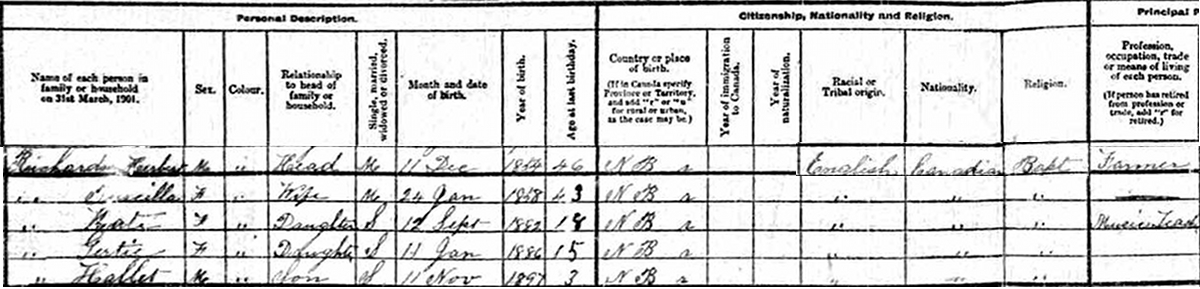 Personal Description.
Citizenship, Nationality and Religion.
Principal P
Name of each person in family or household on 31st March, 1901.
Sex.
Colour.
Relationship to head of family or household.
Single, married, widowed or divorced.
Month and date of birth.
Year of birth.
Age at last birthday.
Country or place of birth. (If in Canada specify Province or Territory, and add "r" or "u" for rural or urban, as the case may be.)
Year of immigration to Canada.
Year of naturalization.
Racial or Tribal origin.
Nationality.
Religion.
Profession, occupation, trade or means of living of each person. (If person has retired from profession or trade, add "r" for retired.)
Herbert M " Head M 11 Dec 1854 46 N B r English Canadian Bapt Farmer
" F " Wife M 24 Jan 1858 43 N B r " " "
" F " Daughter S 12 Sept 1882 18 N B r " " "
" Gertie F " Daughter S 11 Jan 1886 15 N B r " " "
" Hallet M " Son S 11 Nov 1897 3 N B r " " "